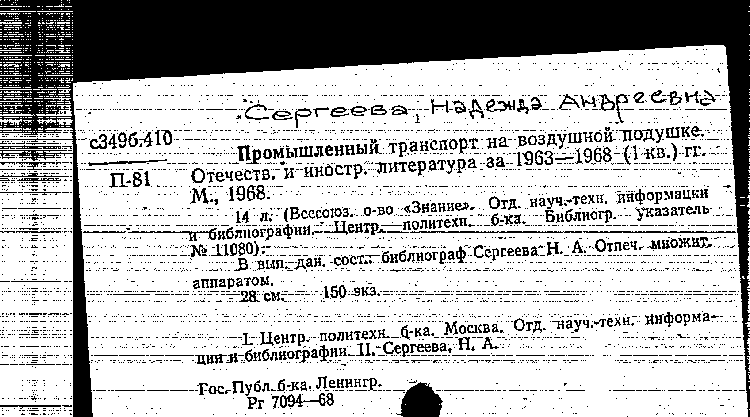 Сергеева, Надежда Андреевна
с3496.410
Промышленный транспорт на воздушной подушке.
П-81
Отечеств. и иностр. литература за 1963—1968 (1 кв.) гг.
М., 1968.
14 л. (Всесоюз. о-во «Знание». Отд. науч.-техн. информации
и библиографии. Центр. политехн. б-ка. Библиогр. указатель
№ 11080).
В вып. дан. сост.: библиограф Сергеева Н. А. Отпеч. множит.
аппаратом.
28 см. 150 экз.
I. Центр. политехн. б-ка. Москва. Отд. науч.-техн. информа-
ции и библиографии. II. Сергеева, Н. А.
Гос. Публ. б-ка. Ленингр.
Рг 7094—68